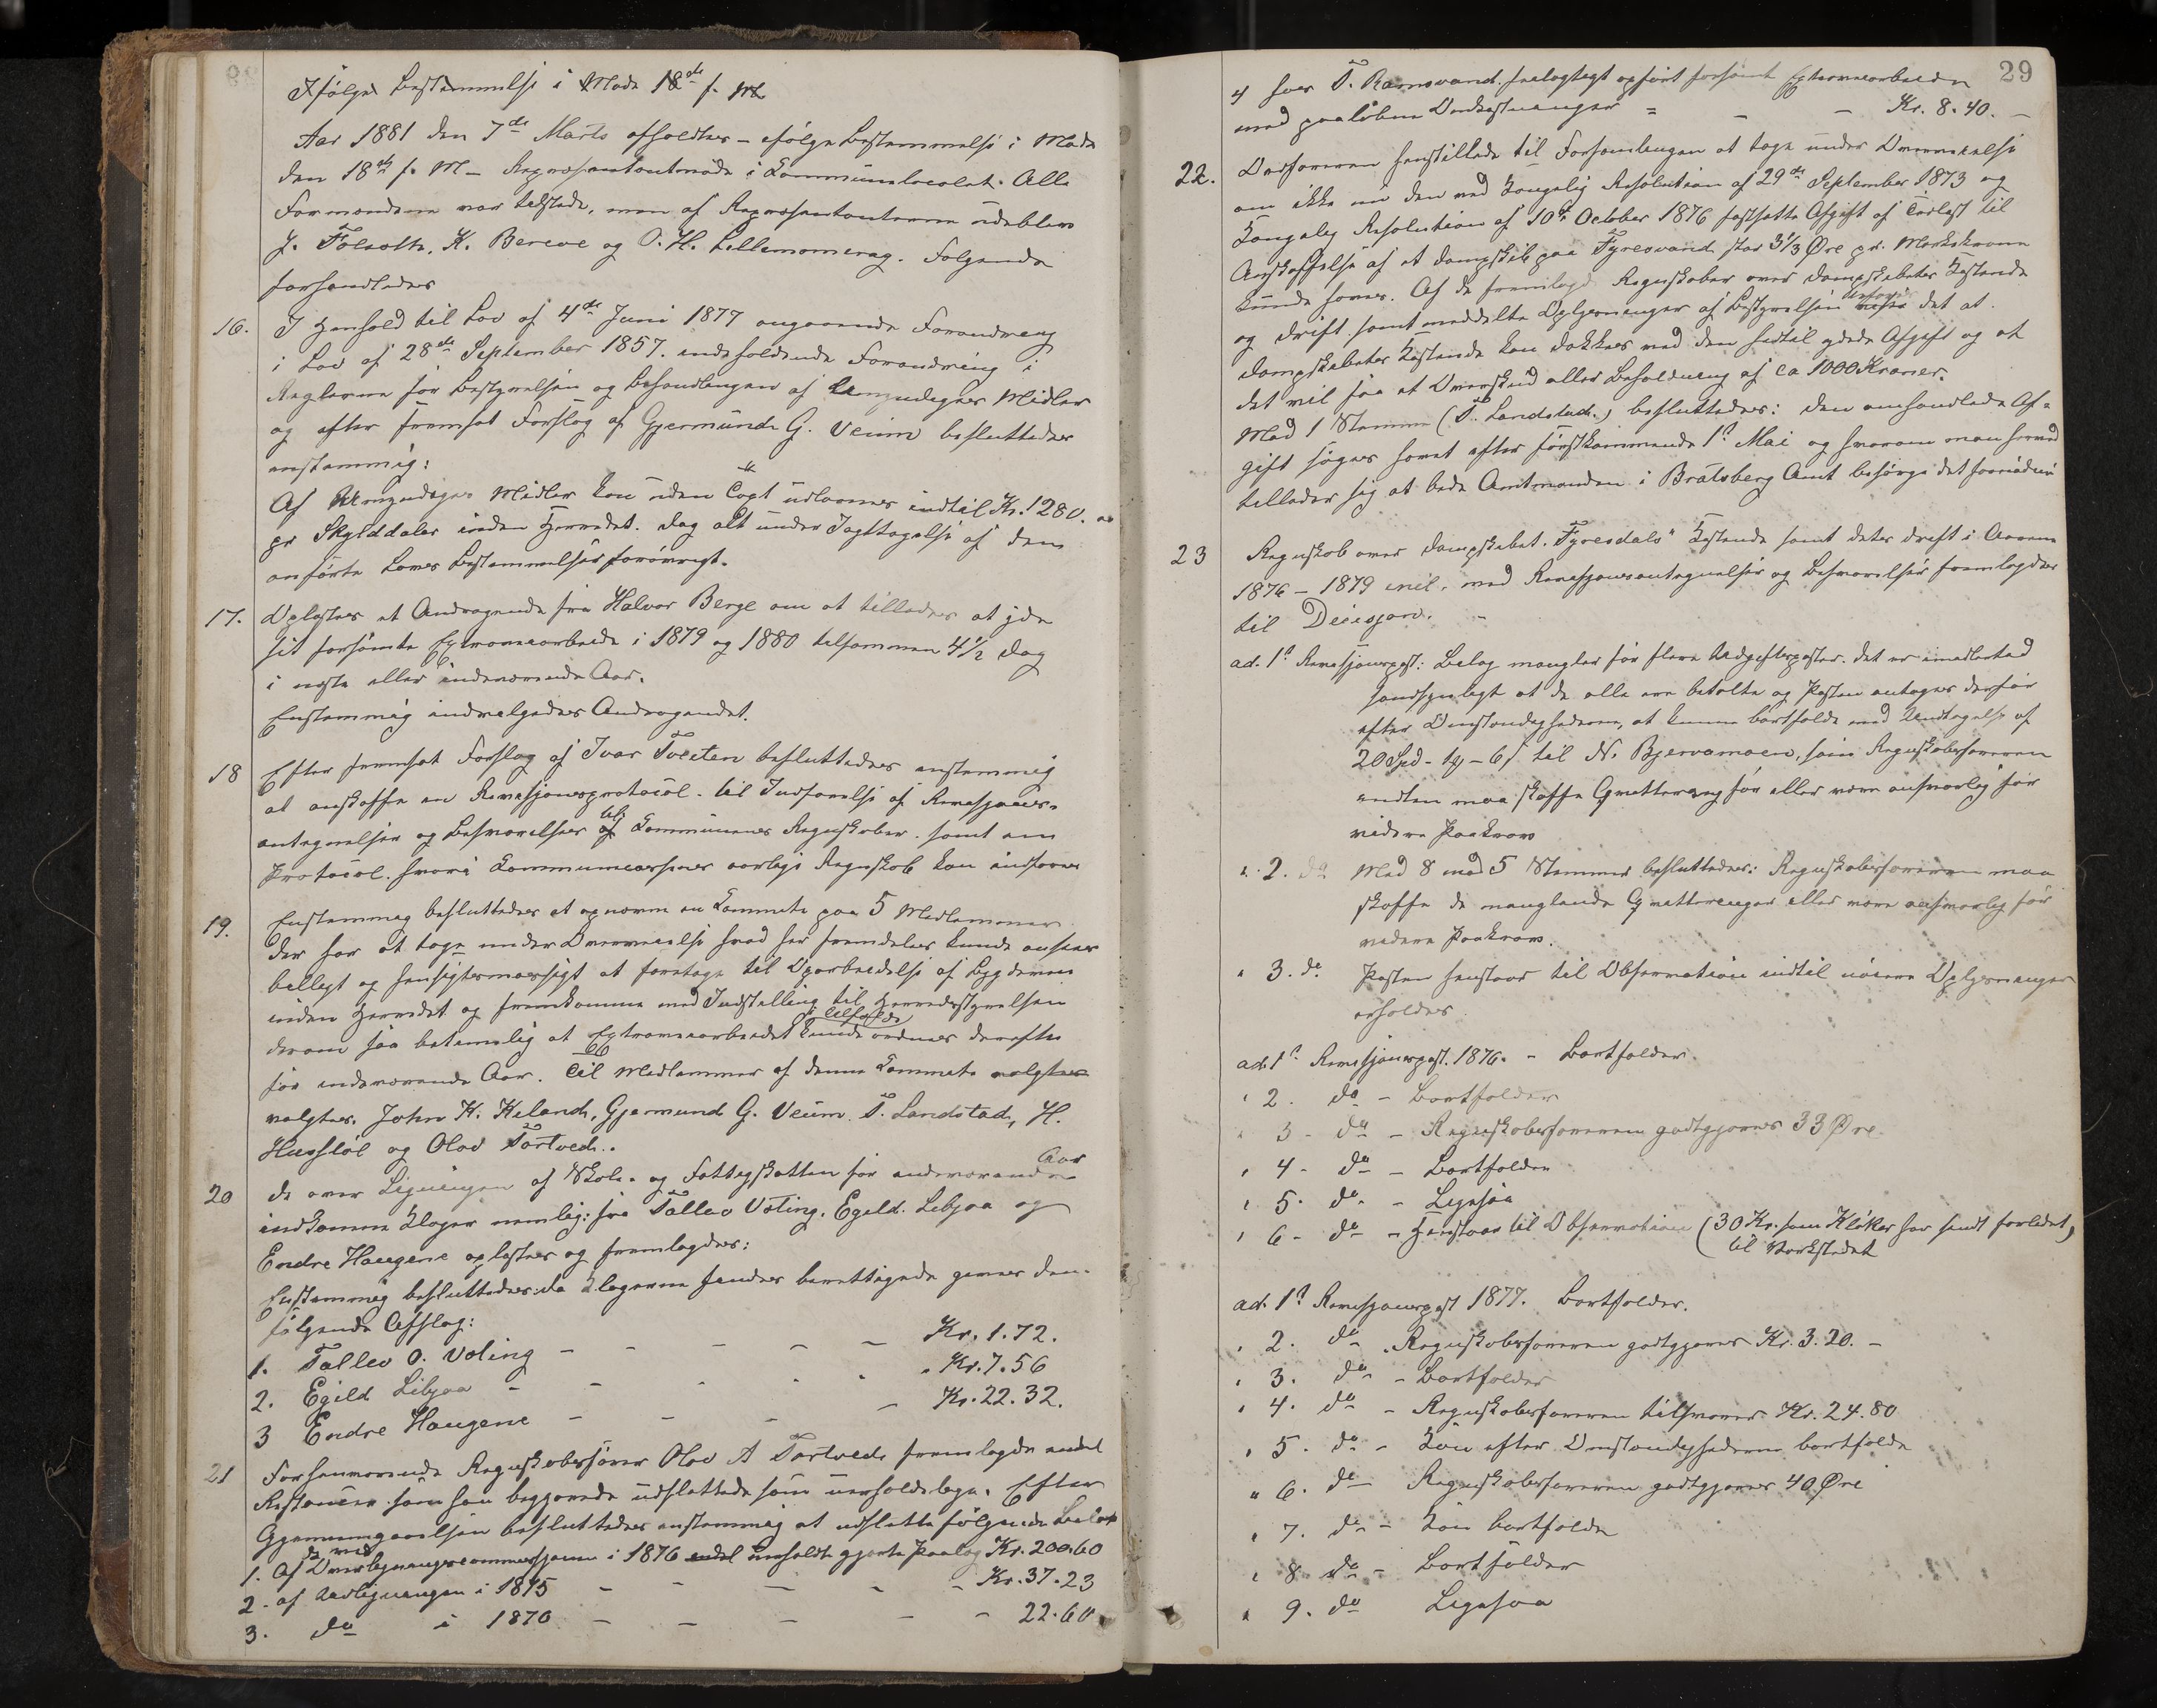 Ifølge Bestemmelse i Møde 18de f. M
Aar 1881 den 7de Marts afholdtes – ifølge Bestemmelse i Møde
den 18de f. M – Repræsentantmøde i Kommunelocalet. Alle
Formændene var tilstede, men af Repræsentanterne udeblev
J. Folsotte, K. Berive og O. H. Lillemomerag. Følgende
forhandledes
16. I Henhold til Lov af 4de Juni 1877 angaaende Forandring
i Lov af 28de September 1857. indeholdende Forandring i
Reglerne for Bestyrelsen og Behandlingen af Umyndiges Midler
og efter fremsat Forslag af Gjermund G. Veum besluttedes
enstemmig:
Af Umyndiges Midler kan uden Capt udlaanes indtil Kr. 1280.
pr Skylddaler inden Herredet. dog alt under Iagttagelse af den
anførte Lovs Bestemmelser forøvrigt.
17. Oplæstes et Andragende fra Halvor Berge om at tillades at yde
sit forsømte Extraveiarbeide i 1879 og 1880 tilsammen 4½ Dag
i næste eller indeværende Aar.
Enstemmig indvilgedes Andragendet.
18 Efter fremsat Forslag af Ivar Tveiten besluttedes enstemmig
at anskaffe en Revisjonsprotocol til Indførelse af Revisjons-
antegnelser og Besvarelser af Kommunens Regnskaber. samt en
Protocol. hvori Kommunecassens aarlige Regnskab kan indføres
19. Enstemmig besluttedes at opnævne en Kommite paa 5 Medlemmer
der har at tage under Overveielse hvad her fremdeles kunde ansees
billigt og hensigtsmæssigt at foretage til Oparbeidelse af Bygdeveie
inden Herredet og fremkomme med Indstilling til Herredsstyrelsen
derom saa betimelig at Extraveiarbeidet i tilfælde kunde ordnes derefter
for indeværende Aar. Til Medlemmer af denne Kommite valgtes
valgtes. John K. Kiland, Gjermund G. Veum. T. Landstad, H.
Husstøl og Olav Tortved..
20 De over Ligningen af Skole- og Fattigskatten for indeværende Aar
indkomne Klager nemlig: fra Tallev Voting. Egild. Libjaa og
Endre Haugene oplæstes og fremlagdes:
Enstemmig besluttedes: da Klagerne findes berettigede gives den
følgende Afslag:
1. Tallev O. Voting – – – – – Kr. 1.72.
2. Egild Libjaa – – – – – Kr. 7.56
3 Endre Haugene – – – – Kr. 22.32.
21 Forhenværende Regnskabsfører Olav A Tortved fremlagde endel
Restancer som han begjærede udslettede som uerholdelige. Efter
Gjennemgaaelsen besluttedes enstemmig at udslette følgende Beløb
1. Af de ved Overligningscommissjonen i 1876 endel Enkelte gjorte Paalæg Kr. 200.60
2. af Udligningen i 1875 – – – – – Kr. 37.23
3. do i 1870 – – – – – 22.60
29
4 hver T. Ramsvand. feilagtigt opført forsømt Extraveiarbeide
med paaløbne Omkostninger = – – Kr. 8.40. –
22. Ordføreren henstillede til Forsamlingen at tage under Overveielse
om ikke nu den ved Kongelig Resolution af 29de September 1873 og
Kongelig Resolution af 10de October 1876 fastsatte Afgift af Tørlast til
Anskaffelse af et dampskib paa Fyresvand stor 3⅓ Øre pr. Markskrone
kunde hæves. Af de fremlagte Regnskaber over dampskibets Kostende
og drift samt meddelte Oplysninger af Bestyrelsen det at
dampskibets Kostende kan dækkes ved den hidtil ydede Afgift og at
det vil faa et Overskud eller Beholdning af ca 1000 Kroner.
Mod 1 Stemme (T. Landstad.) besluttedes: Den omhandlede Af-
gift søges hævet efter førstkommende 1ste Mai og hvorom man herved
tillader sig at bede Amtmanden i Bratsberg Amt besørge det fornødne
23 Regnskab over Dampskibet „Fyresdals“ Kostende samt dets drift i Aarene
1876 – 1879 incl. med Revisjonsantegnelser og Besvarelser fremlagdes
til Decisjon. –
ad. 1ste Revisjonspost: Belæg mangler for flere Udgiftsposter. det er imidlertid
sandsynligt at de alle ere betalte og Posten antages derfor
efter Omstændighederne, at kunne bortfalde med Undtagelse af
20 Spd – 1 – 6 s til N. Bjervamoen, som Regnskabsføreren
endten maa skaffe Qvittering for eller være ansvarlig for
videre Paakrav
„ 2. do Med 8 mod 5 Stemmer besluttedes: Regnskabsføreren maa
skaffe de manglende Qvitteringer eller være ansvarlig for
videre Paakrav.
„ 3. do Posten henstaar til Observation indtil nøiere Oplysninger
erholdes
ad. 1ste Revisjonspost. 1876. – Bortfalder.
„ 2. do – Bortfalder
„ 3 – do – Regnskabsføreren godtgjøres 33 Øre
„ 4 – do – Bortfalder
„ 5. do. – Ligesaa
„ 6 – do – Henstaar til Observation (30 Kr. som Kloker har sendt forlidet
til Værkstedet)
ad. 1ste Revisjonspost 1877. Bortfalder.
„ 2. do Regnskabsføreren godtgjøres Kr. 3.20. –
„ 3. do – Bortfalder
„ 4. do – Regnskabsføreren tilsvarer Kr. 24.80
„ 5. do – Kan efter Omstændighederne bortfalde
„ 6. do – Regnskabsføreren godtgjøres 40 Øre
„ 7. do – Kan bortfalde
„ 8 do – Bortfalder
„ 9. do Ligesaa